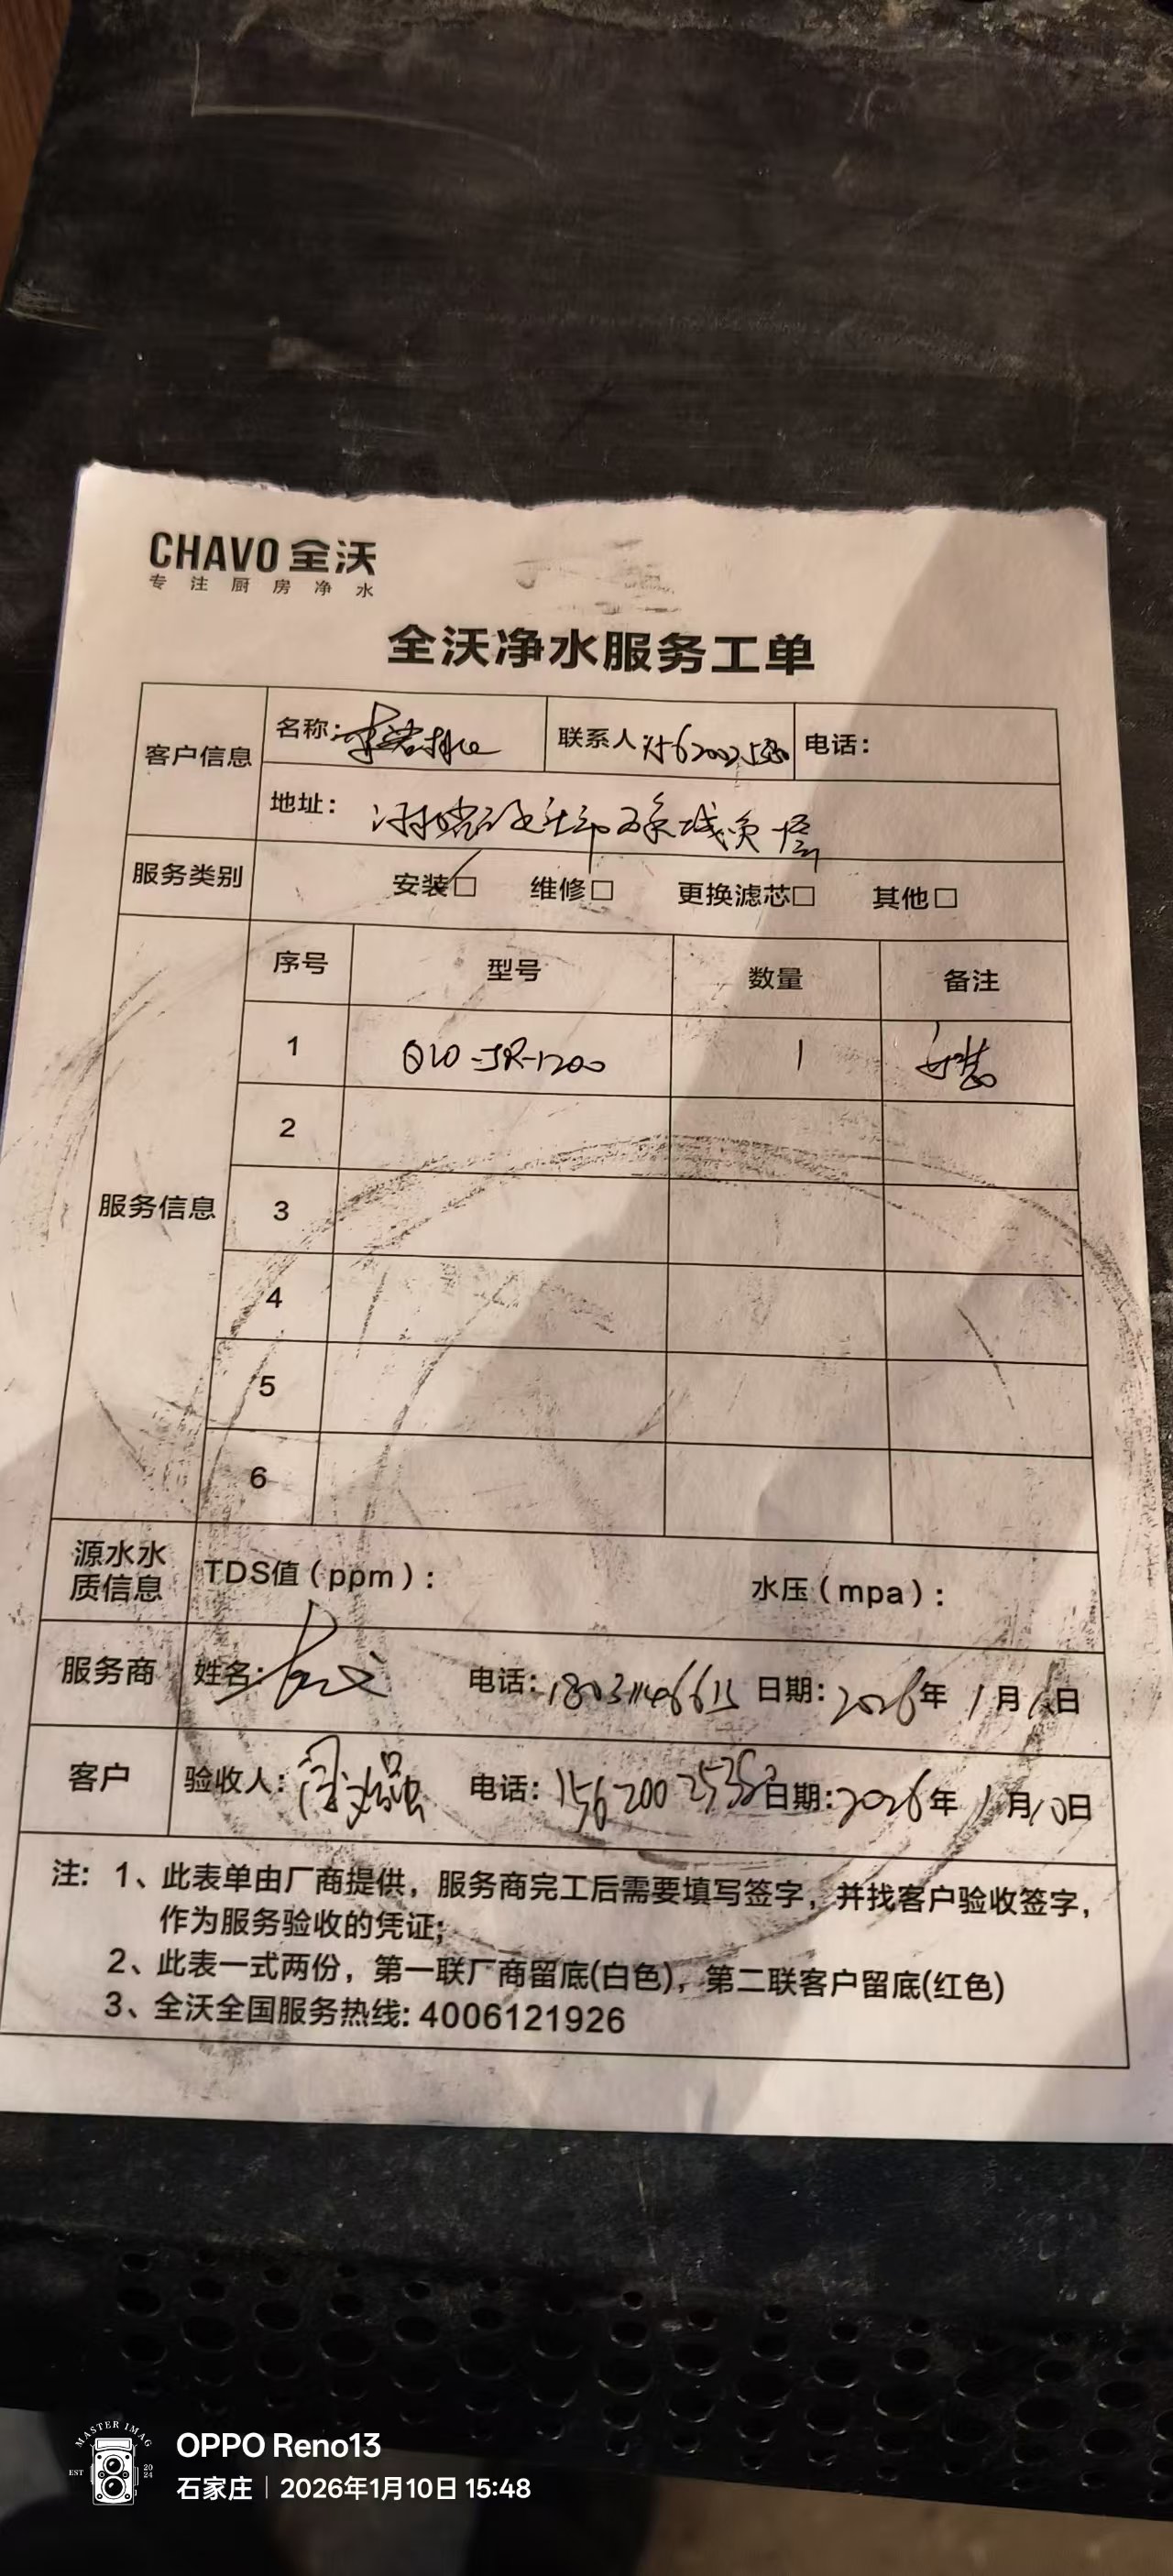 CHAVO 全沃
专注厨房净水
全沃净水服务工单
客户信息
名称:
联系人
电话:
地址:
服务类别
安装□ 维修□ 更换滤芯□ 其他□
服务信息
序号 型号 数量 备注
1 Q10-JR-1200 1 安装
2
3
4
5
6
源水水质信息
TDS值(ppm): 水压(mpa):
服务商 姓名: 电话: 日期:2026年1月10日
客户 验收人: 电话: 日期:2026年1月10日
注: 1、此表单由厂商提供,服务商完工后需要填写签字,并找客户验收签字,
作为服务验收的凭证;
2、此表一式两份,第一联厂商留底(白色),第二联客户留底(红色)
3、全沃全国服务热线: 4006121926
MASTER IMAG
EST 2024
OPPO Reno13
石家庄 | 2026年1月10日 15:48